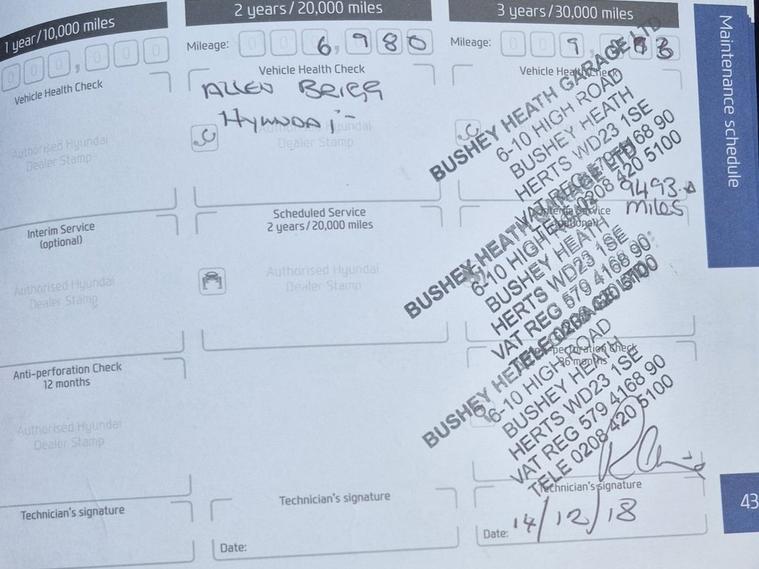 1 year/10,000 miles
Vehicle Health Check
Authorised Hyundai
Dealer Stamp
Interim Service
(optional)
Authorised Hyundai
Dealer Stamp
Anti-perforation Check
12 months
Authorised Hyundai
Dealer Stamp
Technician's signature
2 years/20,000 miles
Mileage: 0 0 6, 9 8 0
Vehicle Health Check
Hyundai
Dealer Stamp
Scheduled Service
2 years/20,000 miles
Authorised Hyundai
Dealer Stamp
Technician's signature
Date:
3 years/30,000 miles
Mileage: 0 0 9
Vehicle Health Check
BUSHEY HEATH GARAGE LTD
6-10 HIGH ROAD
BUSHEY HEATH
HERTS WD23 1SE
VAT REG 579 4168 90
TELE 0208 420 5100
9493
miles
BUSHEY HEATH GARAGE LTD
6-10 HIGH
BUSHEY HEATH
HERTS WD23 1SE
VAT REG 579 4168 90
BUSHEY HEATH
6-10 HIGH ROAD
BUSHEY HEATH
HERTS WD23 1SE
VAT REG 579 4168 90
TELE 0208 420 5100
Technician's signature
Date: 14/12/18
Maintenance schedule
43